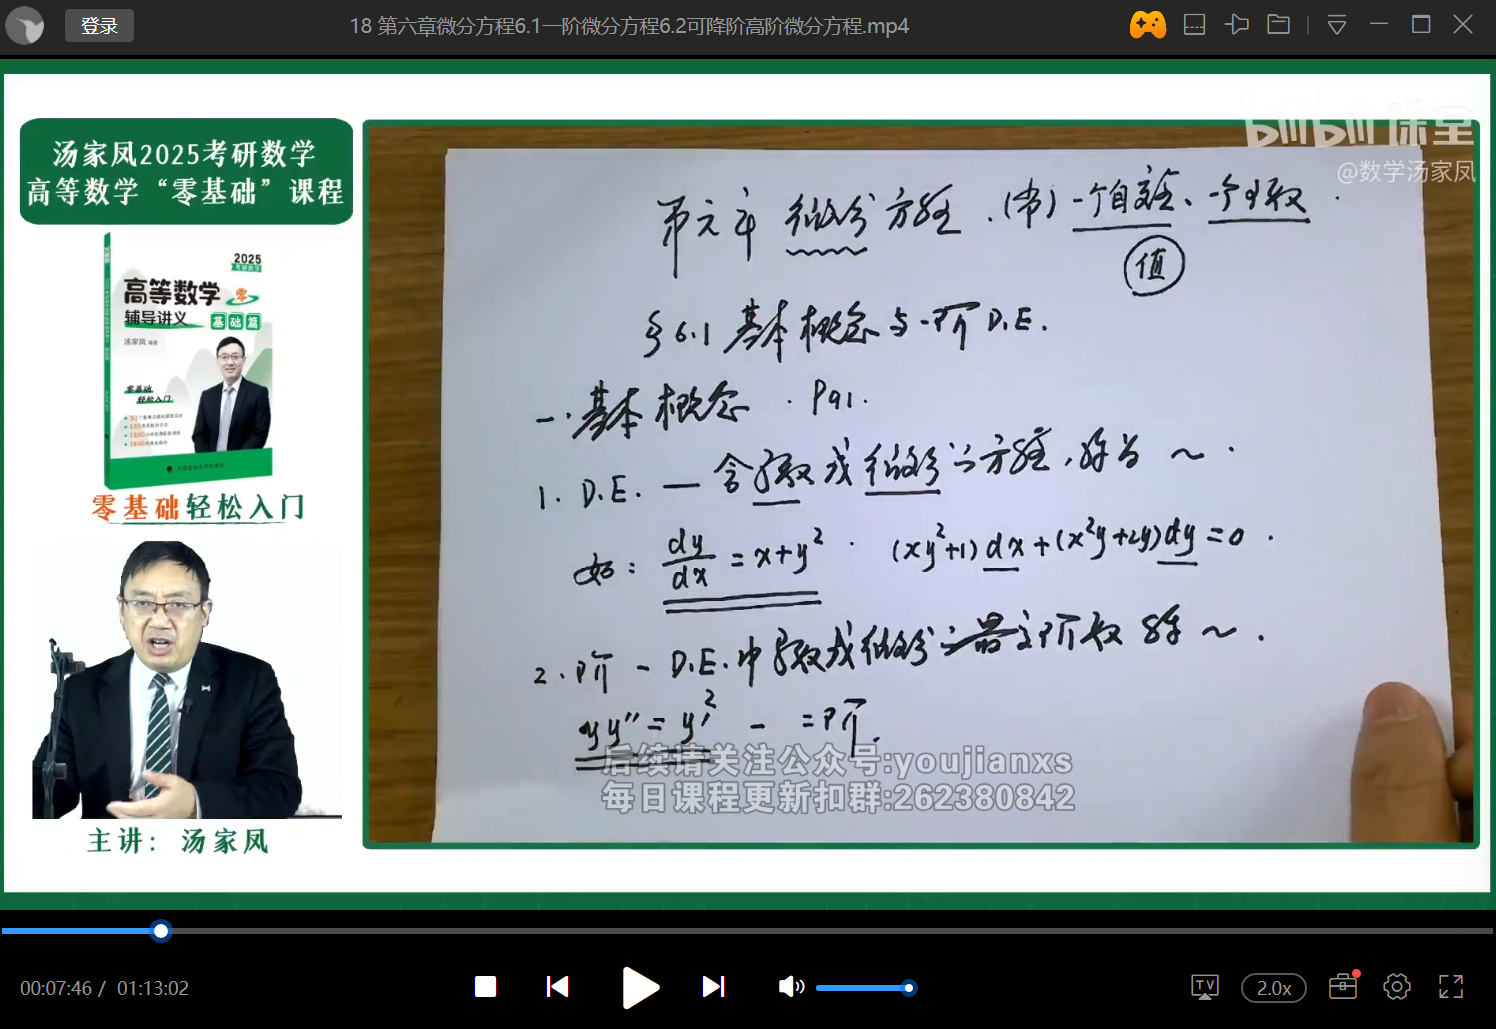 登录
18 第六章微分方程6.1一阶微分方程6.2可降阶高阶微分方程.mp4
汤家凤2025考研数学
高等数学“零基础”课程
2025
考研数学
高等数学 零
辅导讲义 基础篇
汤家凤 编著
零基础
轻松入门
零基础轻松入门
主讲：汤家凤
bilibili 课堂
@数学汤家凤
第六章 微分方程.(常)一个自变量、一个导数.
值
§6.1 基本概念与一阶D.E.
一.基本概念.P91.
1. D.E. — 含导数或微分之方程,称为~.
如: dy/dx = x+y². (xy²+1)dx+(x²y+2y)dy=0.
2. 阶 — D.E.中导数或微分之最高阶数称~.
yy″=y′² — 二阶.
后续请关注公众号:youjianxs
每日课程更新扣群:262380842
00:07:46 / 01:13:02
TV
2.0x